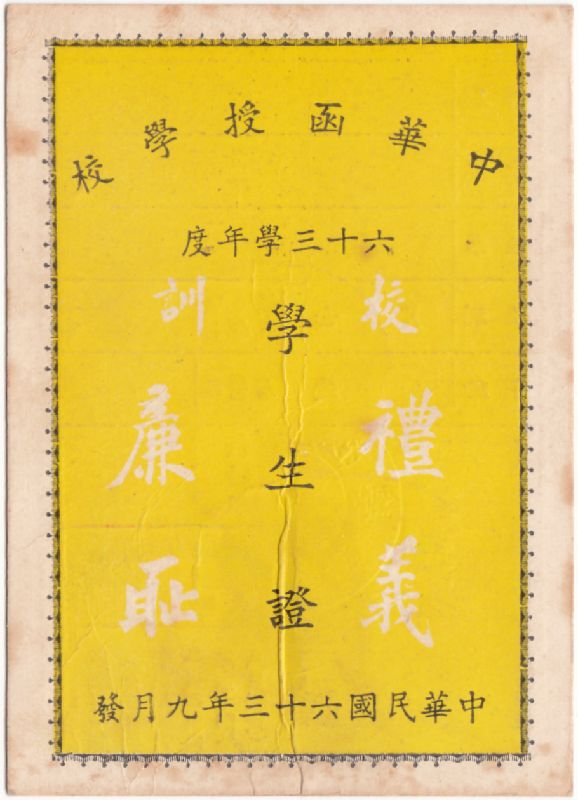 中華函授學校
六十三學年度
學生證
校訓
禮義
廉恥
中華民國六十三年九月發